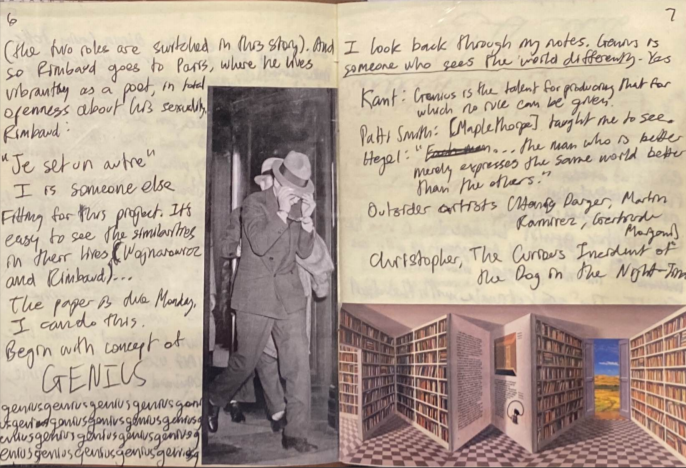 6
(the two roles are switched in this story). And
so Rimbaud goes to Paris, where he lives
vibrantly as a poet, in total
openness about his sexuality.
Rimbaud:
"Je set un autre"
I is someone else
Fitting for this project. It's
easy to see the similarities
in their lives (Wojnarowicz
and Rimbaud)...
The paper is due Monday,
I can do this.
Begin with concept of
GENIUS
geniusgeniusgeniusgenius
geniusgeniusgeniusgenius
geniusgeniusgeniusgenius
geniusgeniusgeniusgenius
7
I look back through my notes. Genius is
someone who sees the world differently. Yes
Kant: Genius is the talent for producing that for
which no rule can be given.
Patti Smith: [Maplethorpe] taught me to see.
Hegel: "... the man who is better
merely expresses the same world better
than the others."
Outsider artists (Henry Darger, Martin
Ramirez, Gertrude
Morgan)
Christopher, The Curious Incident of
the Dog in the Night-Time